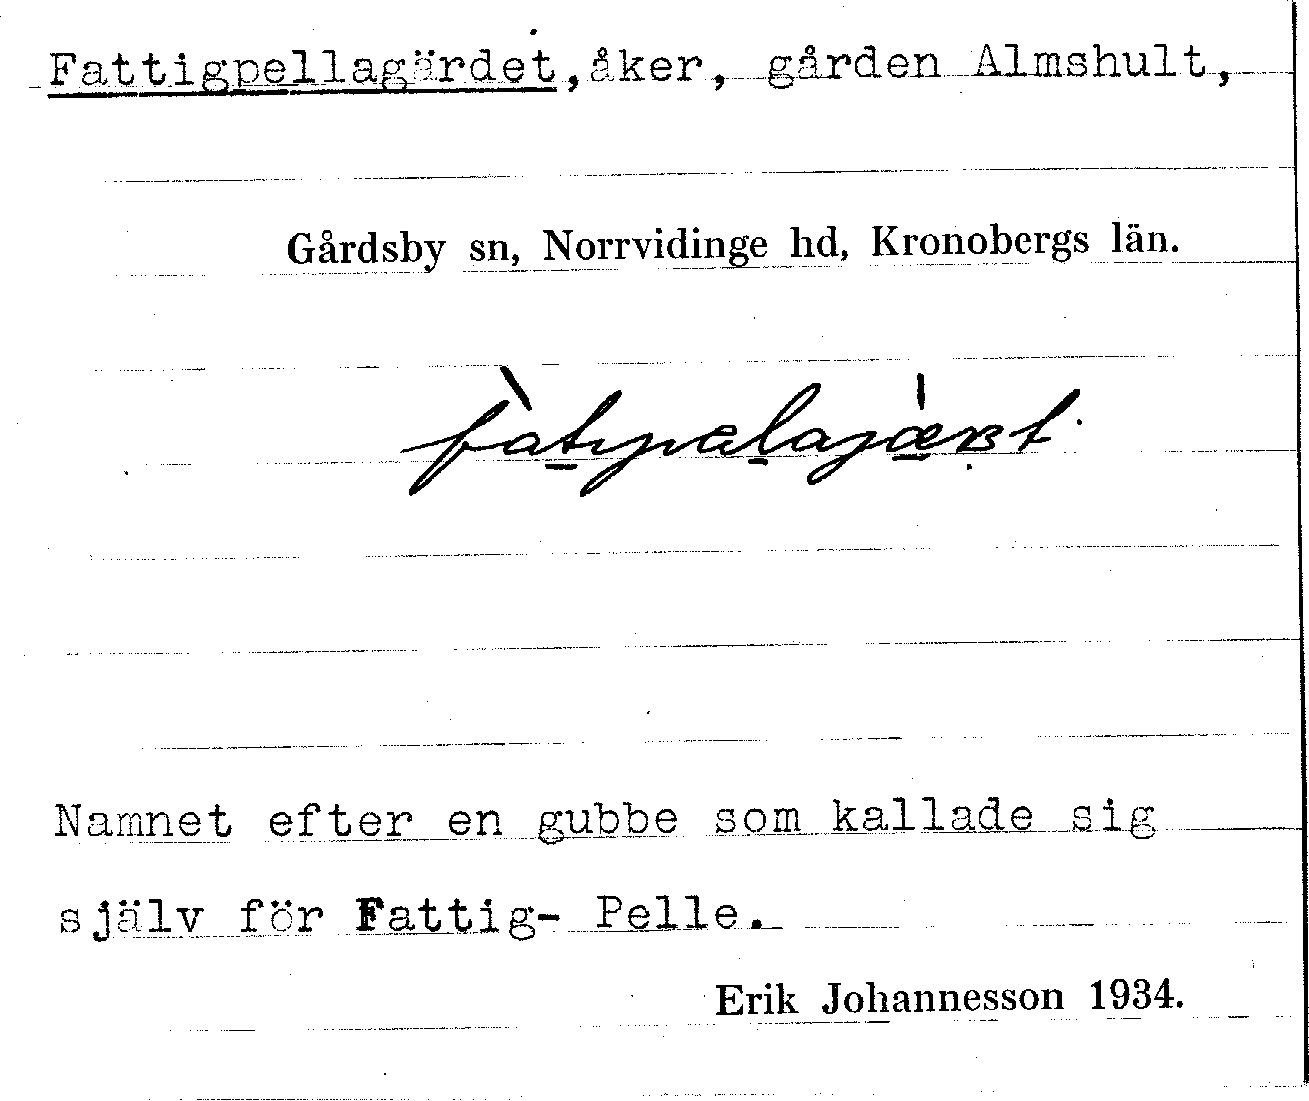 Fattigpellagärdet, åker, gården Almshult,
Gårdsby sn, Norrvidinge hd, Kronobergs län.
Namnet efter en gubbe som kallade sig
själv för Fattig- Pelle.
Erik Johannesson 1934.